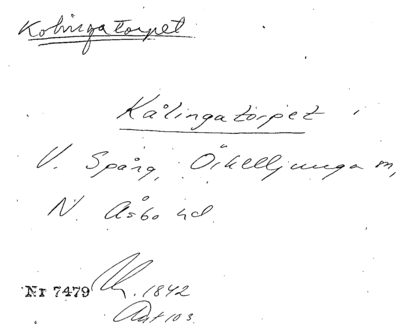 Kolingatorpet
Kålingatorpet
V. Spång, Örkelljunga sn,
N. Åsbo hd
Nr 7479 1842
Akt 103